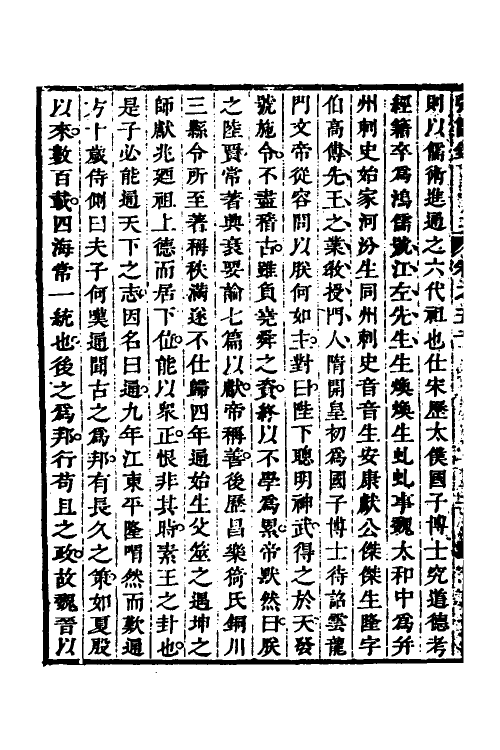 則以儒術進通之六代祖也仕宋歷太僕國子博士究道德考
經籍卒爲鴻儒號江左先生生煥煥生虬虬事魏太和中爲幷
州刺史始家河汾生同州刺史音音生安康獻公傑傑生隆字
伯高傳先王之業敎授門人隋開皇初爲國子博士待詔雲龍
門文帝從容問以朕何如主對曰陛下聰明神武得之於天發
號施令不盡稽古雖負堯舜之資終以不學爲累帝默然曰朕
之陸賢常者興衰要論七篇以獻帝稱善後歷昌樂猗氏銅川
三縣令所至著稱秩滿遂不仕歸四年通始生父筮之遇坤之
師獻兆廻祖上德而居下位能以衆正恨非其時素王之卦也
是子必能通天下之志因名曰通九年江東平隆喟然而歎通
方十歲侍側曰夫子何嘆通聞古之爲邦有長久之策如夏股
以來數百載四海常一統也後之爲邦行苟且之政故魏晉以